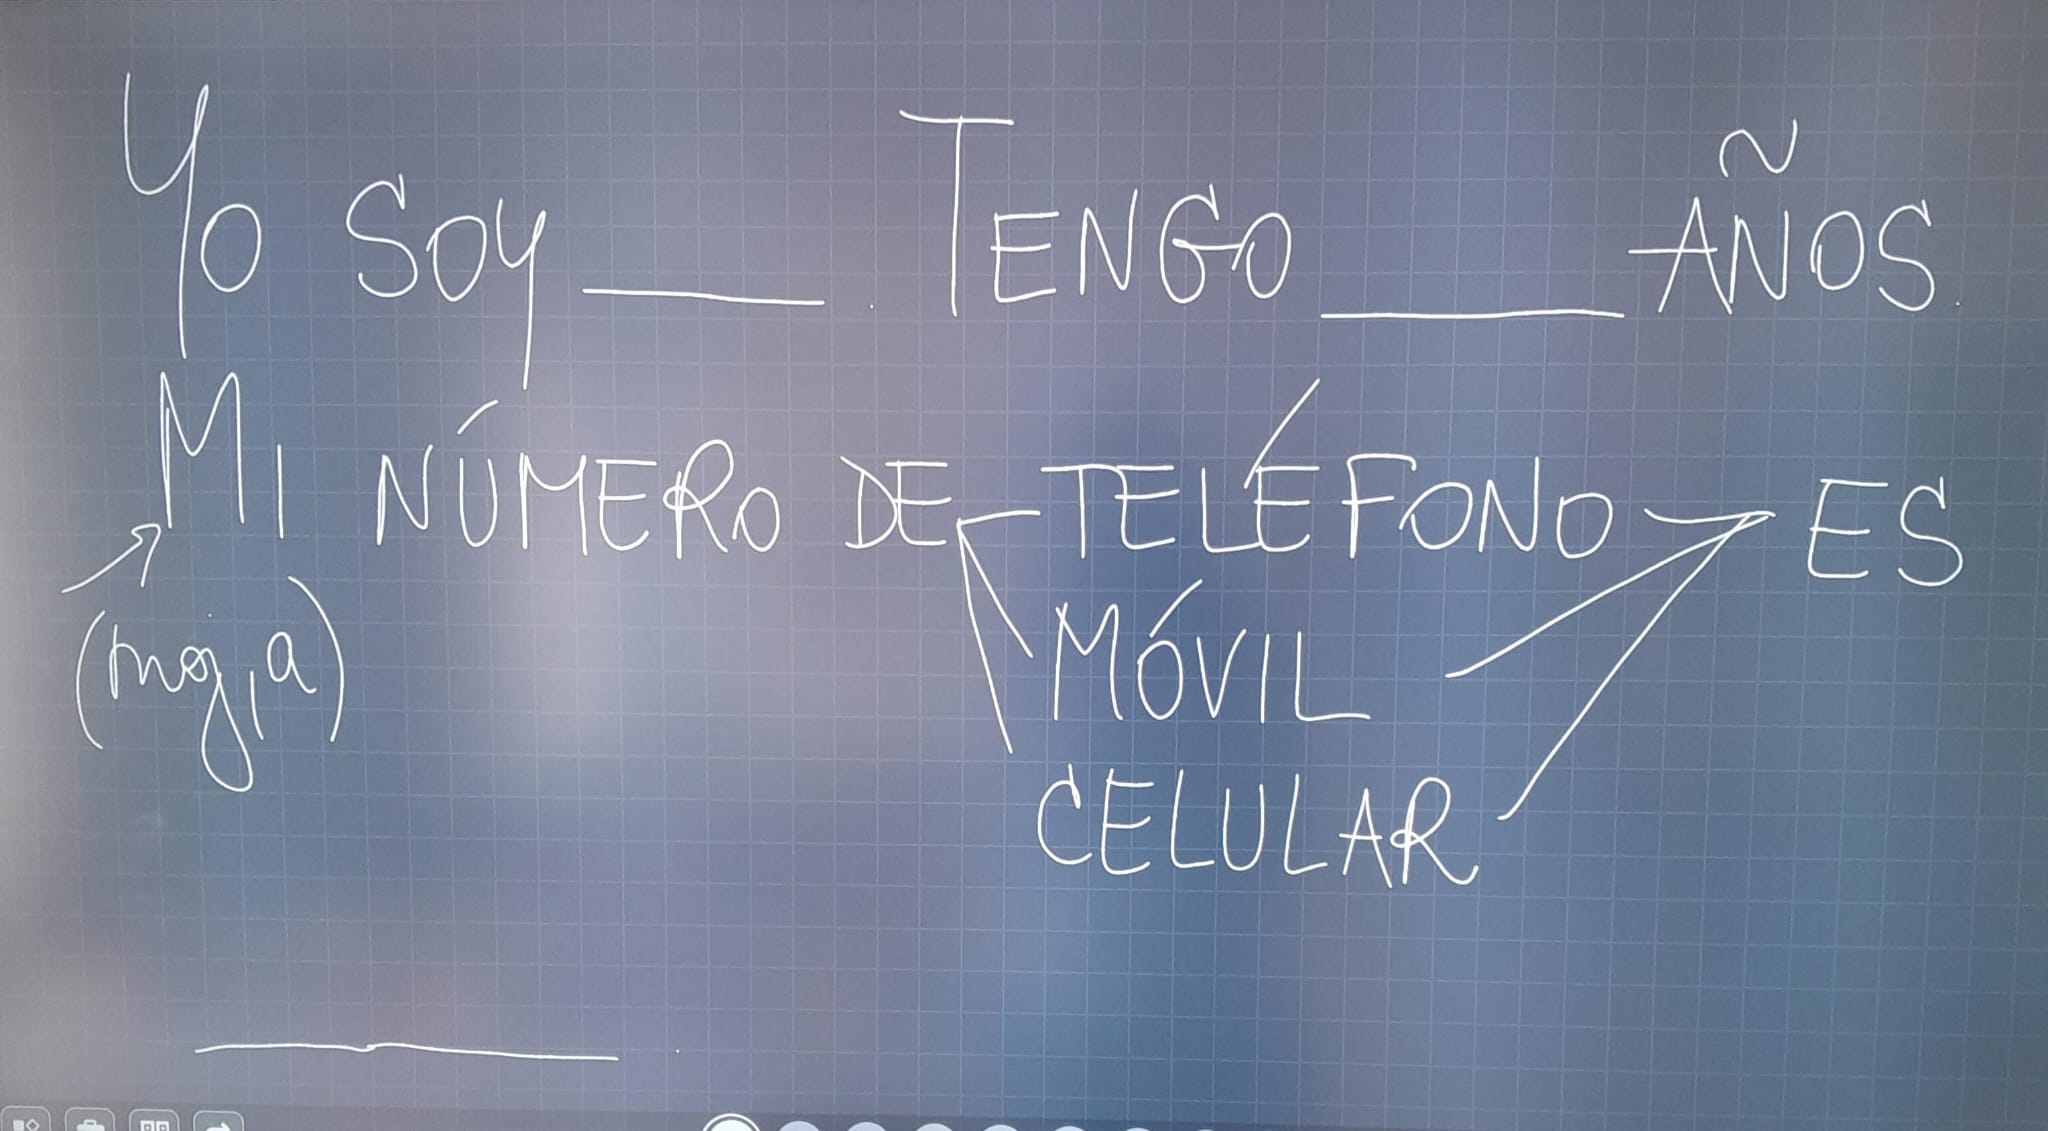 Yo SOY ____. TENGO ____ AÑOS.
MI NÚMERO DE TELÉFONO ES
(moj, a) MÓVIL
CELULAR
____.